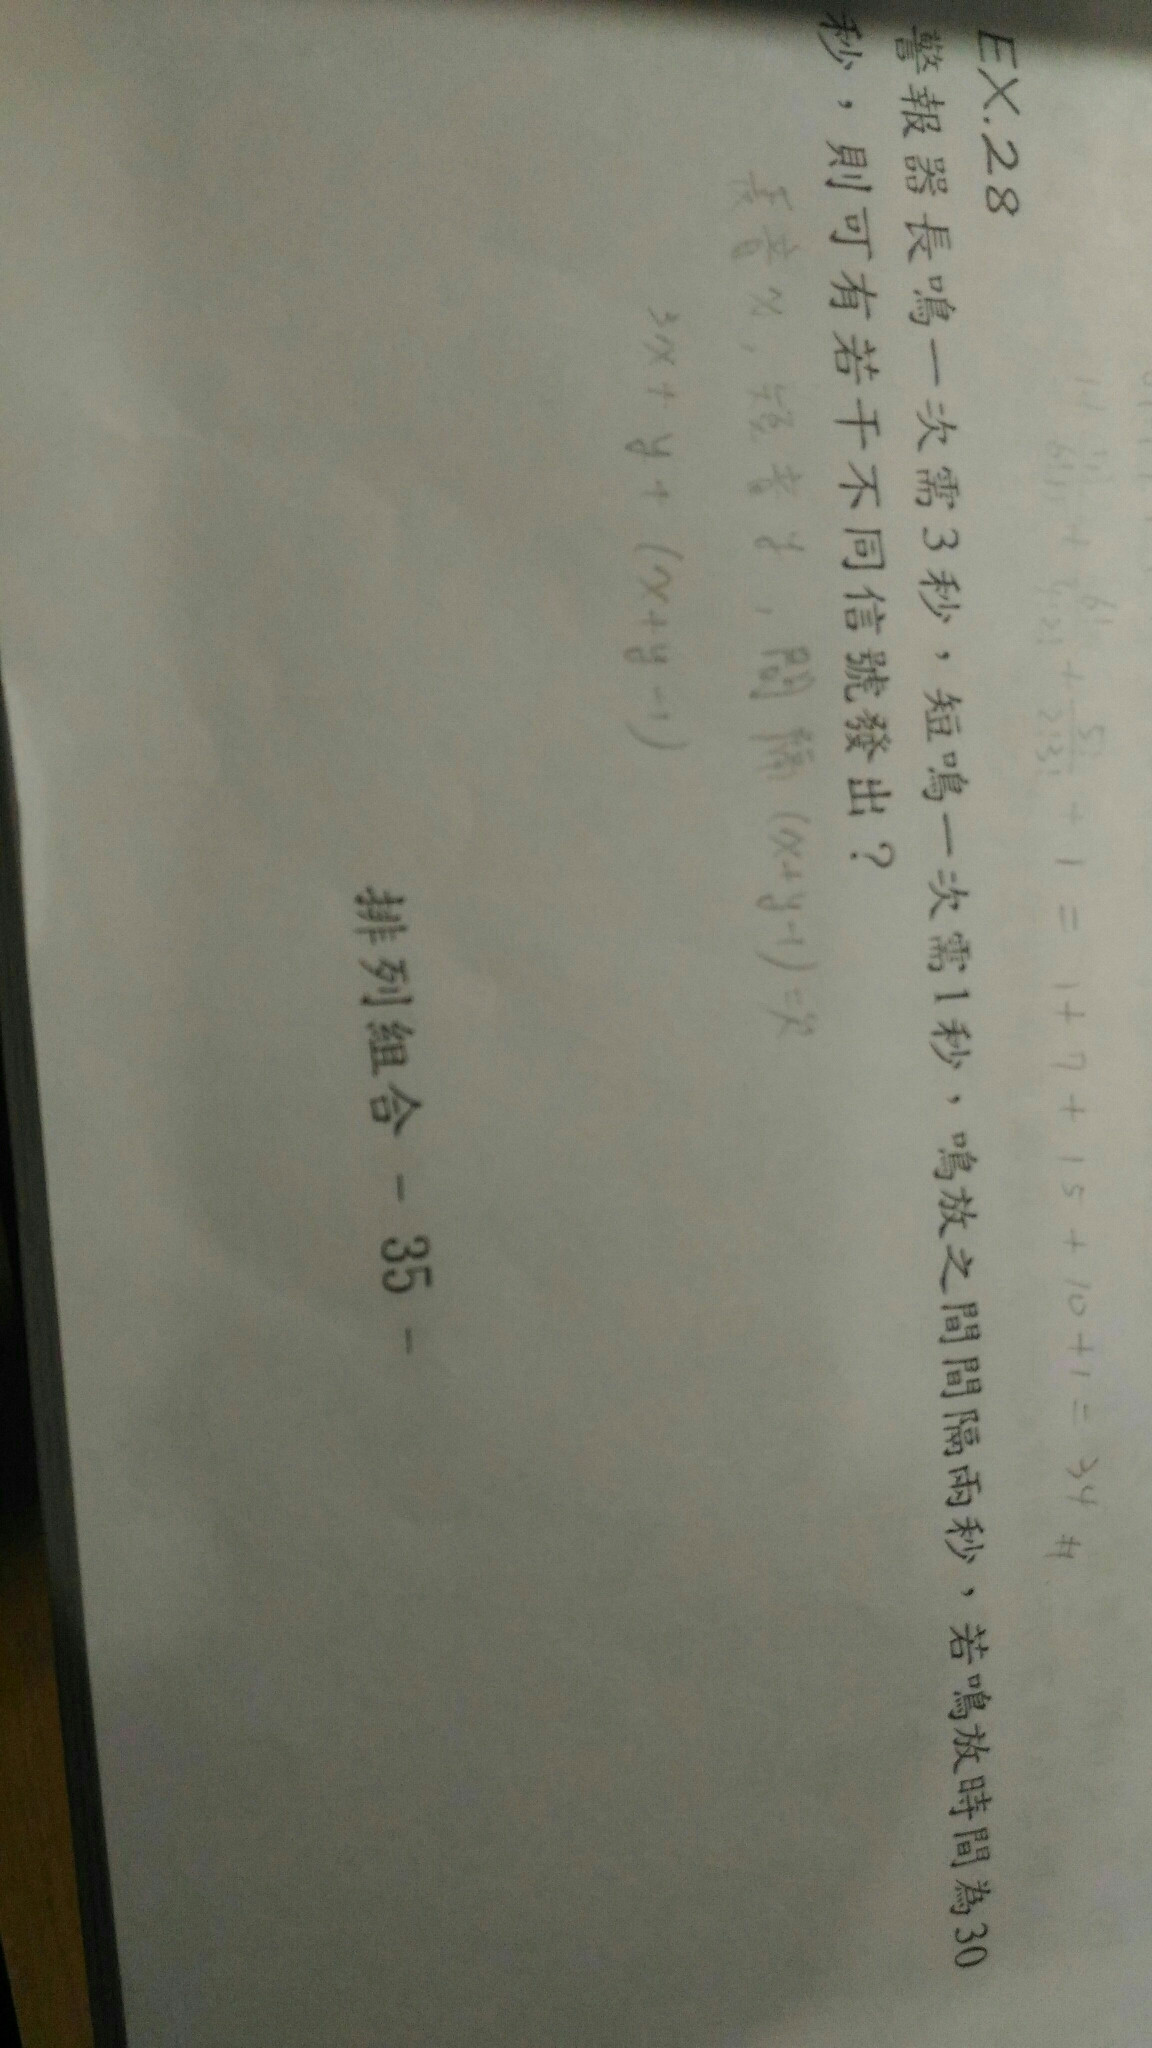 + 1 = 1 + 7 + 15 + 10 + 1 = 34 #
EX.28
警報器長鳴一次需3秒，短鳴一次需1秒，鳴放之間間隔兩秒，若鳴放時間為30
秒，則可有若干不同信號發出？
長音x，短音y，間隔(x+y-1)=次
3x + y + (x+y-1)
排列組合 - 35 -